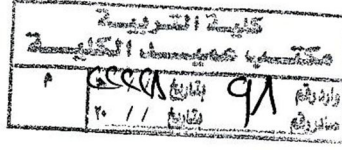 كلية التربية
مكتب عميد الكلية
وارد رقم ٩٨ بتاريخ م
صادر رقم بتاريخ / / ٢٠